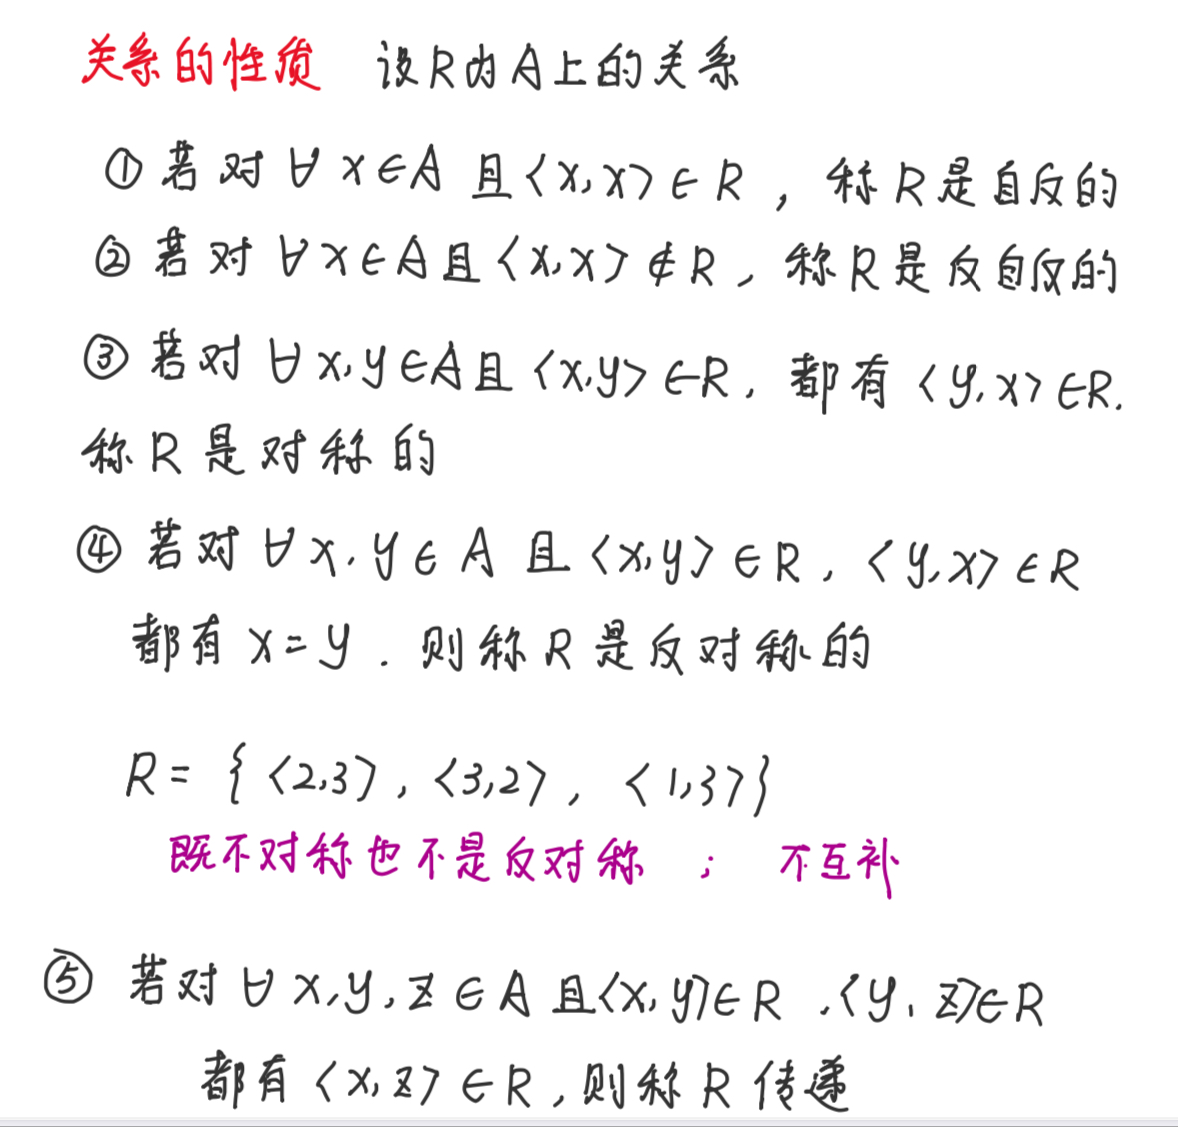 关系的性质 设R为A上的关系
① 若对 ∀ x∈A 且<x,x> ∈ R , 称R是自反的
② 若对 ∀x∈A且<x,x> ∉ R , 称R是反自反的
③ 若对 ∀x,y∈A且<x,y>∈R, 都有<y,x>∈R.
称R是对称的
④ 若对 ∀x,y∈A 且<x,y>∈R, <y,x>∈R
都有 x=y . 则称R是反对称的
R= {<2,3>, <3,2>, <1,3>}
既不对称也不是反对称 ; 不互补
⑤ 若对 ∀x,y,z∈A且<x,y>∈R ,<y,z>∈R
都有<x,z>∈R ,则称R传递